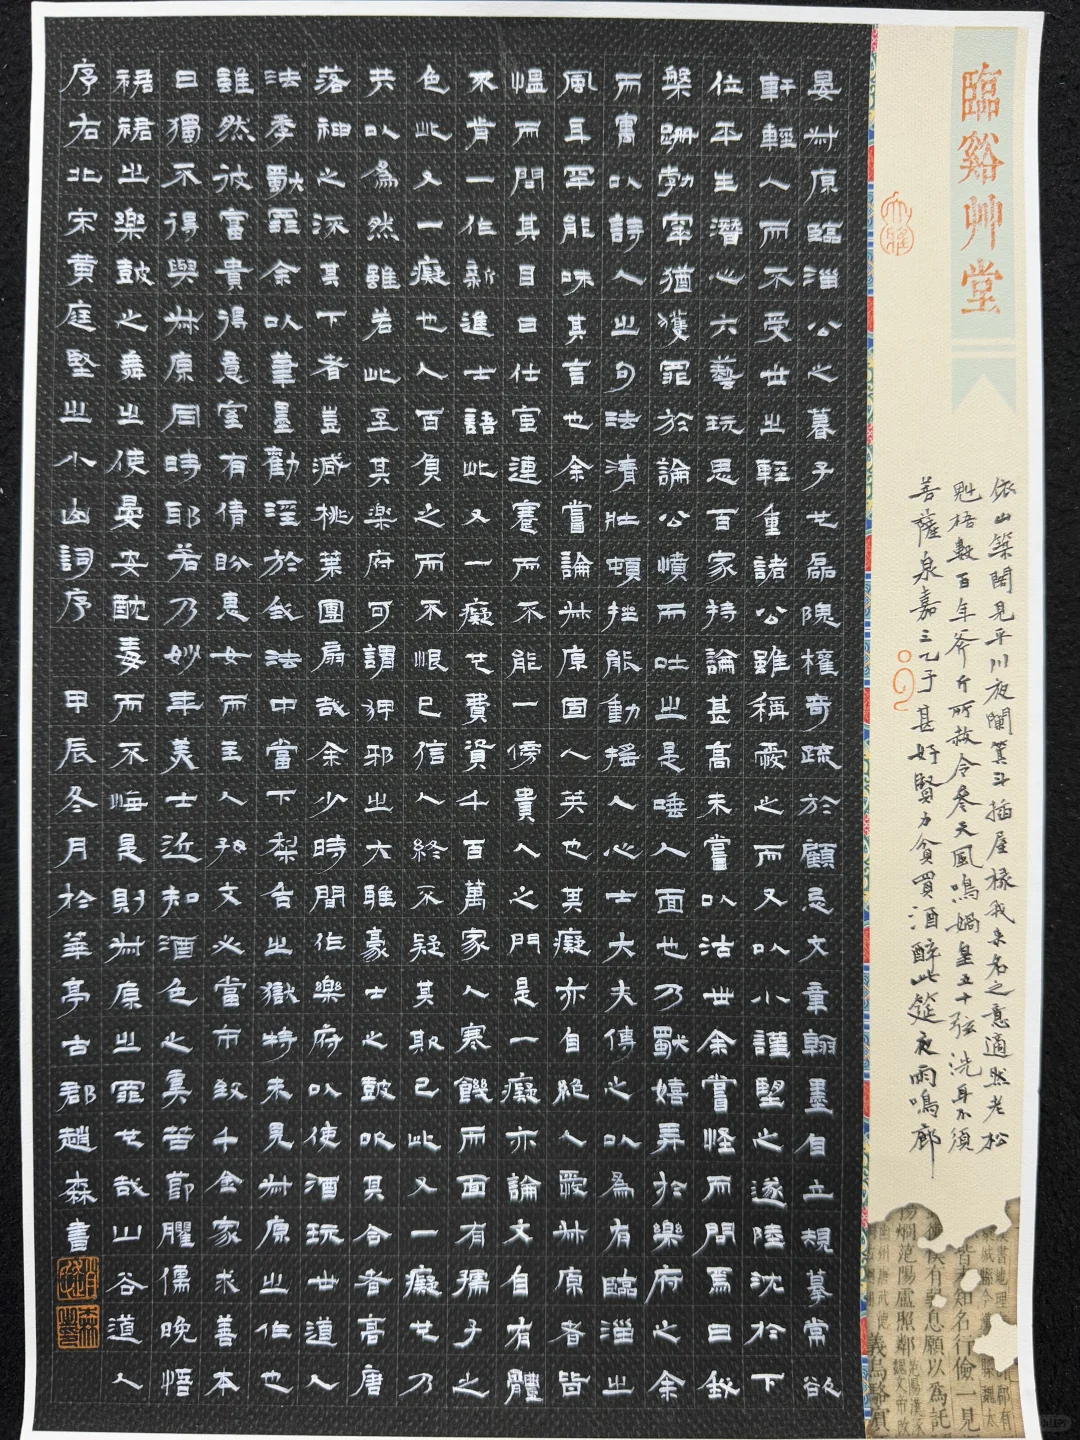 臨谿艸堂
依山築閣見平川夜闌箕斗插屋椽我來名之意適然老松
魁梧數百年斧斤所赦令參天風鳴媧皇五十弦洗耳不須
菩薩泉嘉三二子甚好賢力貧買酒醉此筵夜雨鳴廊
晏叔原臨淄公之暮子也磊隗權奇疏於顧忌文章翰墨自立規摹常欲
軒輊人而不受世之輕重諸公雖稱愛之而又以小謹望之遂陸沈於下
位平生潛心六藝玩思百家持論甚高未嘗以沽世余嘗怪而問焉曰我
槃跚勃窣猶獲罪於論公憤而吐之是唾人面也乃獨嬉弄於樂府之余
而寓以詩人之句法清壯頓挫能動搖人心士大夫傳之以為有臨淄之
風耳罕能味其言也余嘗論叔原固人英也其癡亦自絕人愛叔原者皆
慍而問其目曰仕宦連蹇而不能一傍貴人之門是一癡亦論文自有體
不肯一作新進士語此又一癡也費資千百萬家人寒饑而面有孺子之
色此又一癡也人百負之而不恨己信人終不疑其欺己此又一癡也乃
共以為然雖若此至其樂府可謂狎邪之大雅豪士之鼓吹其合者高唐
落神之流其下者豈減桃葉團扇哉余少時間作樂府以使酒玩世道人
法秀獨罪余以筆墨勸淫於我法中當下犁舌之獄特未見叔原之作也
雖然彼富貴得意室有倩盼惠女而主人好文必當市致千金家求善本
曰獨不得與叔原同時耶若乃妙年美士近知酒色之虞苦節臞儒晚悟
裙裙之樂鼓之舞之使晏安酖毒而不悔是則叔原之罪也哉山谷道人
序右北宋黄庭堅之小山詞序 甲辰冬月於華亭古郡趙森書
知名行儉一見
息願以為託
范陽盧照鄰
義烏駱賓